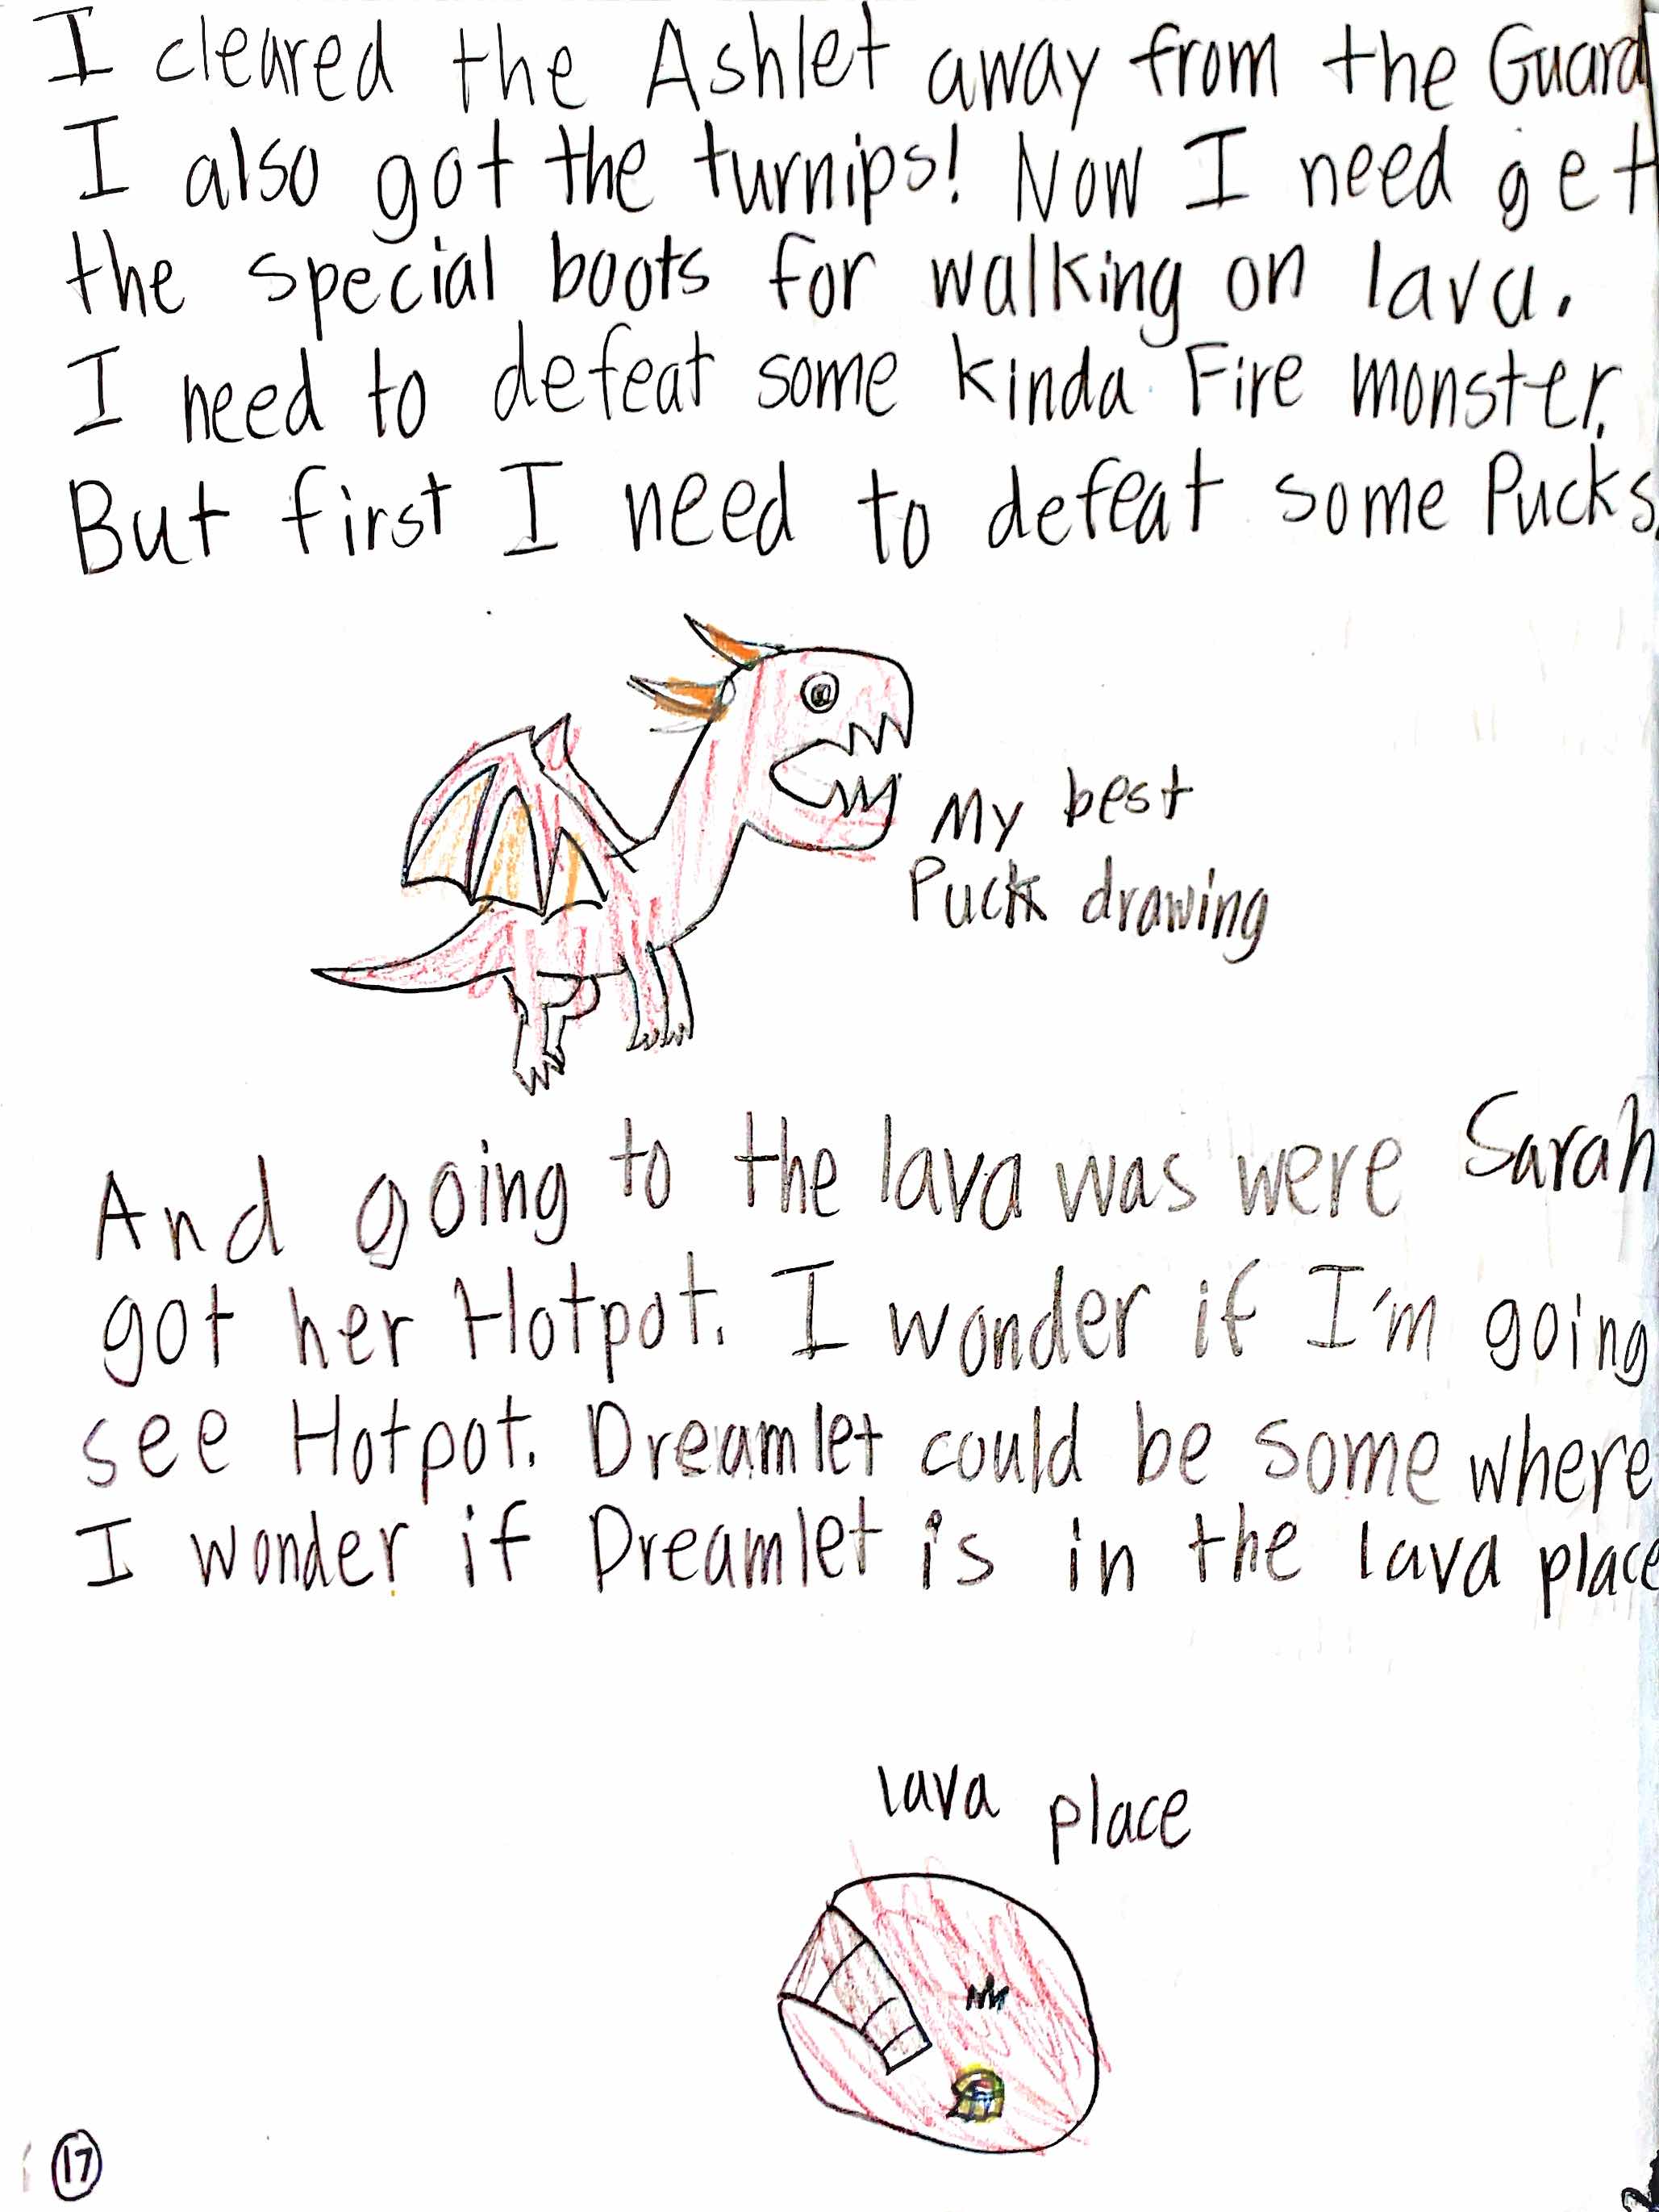 I cleared the Ashlet away from the Guard
I also got the turnips! Now I need get
the special boots for walking on lava.
I need to defeat some kinda Fire monster.
But first I need to defeat some Pucks.
My best
Puck drawing
And going to the lava was were Sarah
got her Hotpot. I wonder if I'm going
see Hotpot. Dreamlet could be some where
I wonder if Dreamlet is in the lava place
lava place
17